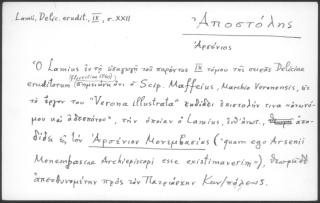 Lamii, Delic. erudit., IX, σ. XXII
Ἀποστόλης
Ἀρσένιος
Ὁ Lamius ἐν τῇ εἰσαγωγῇ τοῦ παρόντος IX τόμου τῆς σειρᾶς Deliciae
(Florentiae 1740)
eruditorum σημειώνει ὅτι ὁ Scip. Maffeius, Marchio Veronensis, εἰς
τὸ ἔργον του "Verona illustrata" ἐκδίδει ἐπιστολήν τινα ἀνωνύ-
μου καὶ ἀδέσποτον", τὴν ὁποίαν ὁ Lamius, ἀπο-
δίδει εἰς τὸν Ἀρσένιον Μονεμβασίας ("quam ego Arsenii
Monembasiae Archiepiscopi esse existimaverim"),
ἀπευθυνομένην πρὸς τὸν Πατριάρχην Κων/πόλεως.